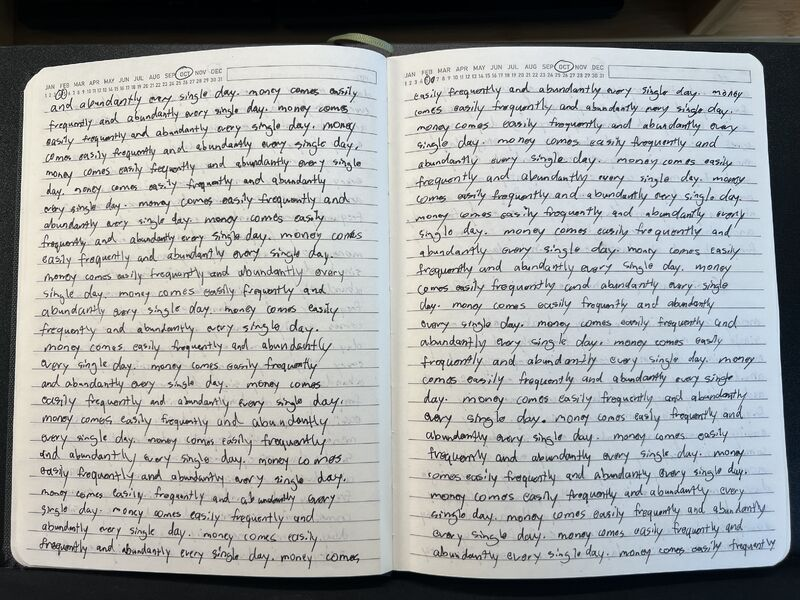 JAN FEB MAR APR MAY JUN JUL AUG SEP OCT NOV DEC
and abundantly every single day. money comes easily
frequently and abundantly every single day. money comes
easily frequently and abundantly every single day. money
comes easily frequently and abundantly every single day.
money comes easily frequently and abundantly every single
day. money comes easily frequently and abundantly
every single day. money comes easily frequently and
abundantly every single day. money comes easily
frequently and abundantly every single day. money comes
easily frequently and abundantly every single day.
money comes easily frequently and abundantly every
single day. money comes easily frequently and
abundantly every single day. money comes easily
frequently and abundantly every single day.
money comes easily frequently and abundantly
every single day. money comes easily frequently
and abundantly every single day. money comes
easily frequently and abundantly every single day.
money comes easily frequently and abundantly
every single day. money comes easily frequently
and abundantly every single day. money comes
easily frequently and abundantly every single day.
money comes easily frequently and abundantly every
single day. money comes easily frequently and
abundantly every single day. money comes easily
frequently and abundantly every single day. money comes
JAN FEB MAR APR MAY JUN JUL AUG SEP OCT NOV DEC
easily frequently and abundantly every single day. money
comes easily frequently and abundantly every single day.
money comes easily frequently and abundantly every
single day. money comes easily frequently and
abundantly every single day. money comes easily
frequently and abundantly every single day. money
comes easily frequently and abundantly every single day.
money comes easily frequently and abundantly every
single day. money comes easily frequently and
abundantly every single day. money comes easily
frequently and abundantly every single day. money
comes easily frequently and abundantly every single
day. money comes easily frequently and abundantly
every single day. money comes easily frequently and
abundantly every single day. money comes easily
frequently and abundantly every single day. money
comes easily frequently and abundantly every single
day. money comes easily frequently and abundantly
every single day. money comes easily frequently and
abundantly every single day. money comes easily
frequently and abundantly every single day. money
comes easily frequently and abundantly every single day.
money comes easily frequently and abundantly every
single day. money comes easily frequently and abundantly
every single day. money comes easily frequently and
abundantly every single day. money comes easily frequently